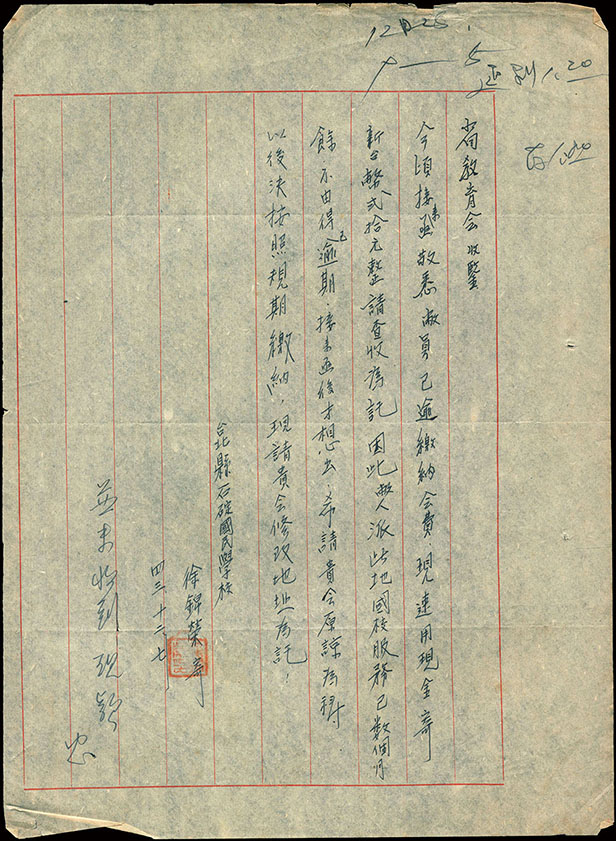 12月28.
5
还 別 1.20
省教育会 收鑒
今頃接來函敬悉敝員已逾繳納会費現速用現金寄
新台幣弍拾元整請查收為託 因此敝人派此地國校服務已数個月
餘.不由得已逾期.接來函後才想出.希請貴会原諒為禱
以後決按照規期繳納,現請貴会修改地址為託!
台北縣石碇國民學校
徐錦榮 寄
四三 十二 七
並未收到現款